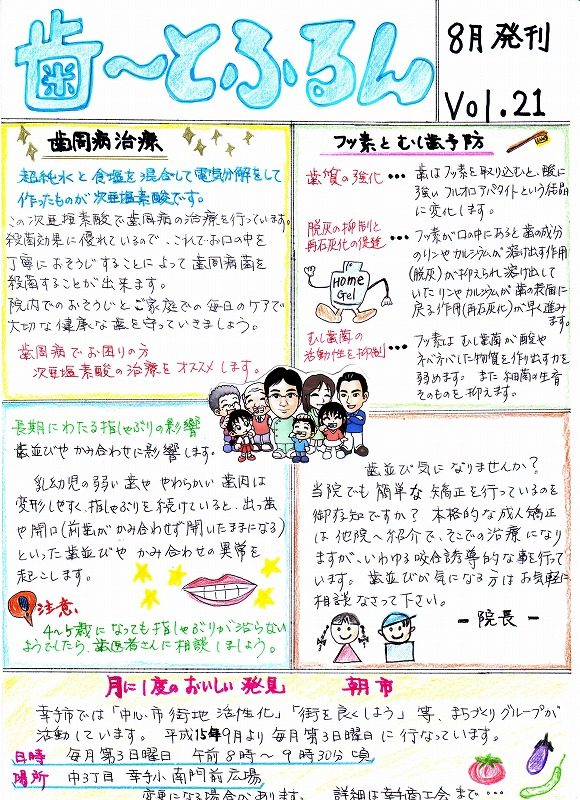 歯〜とふるん
8月発刊
Vol.21
歯周病治療
超純水と食塩を混合して電気分解をして
作ったものが次亜塩素酸です。
この次亜塩素酸で歯周病の治療を行っています。
殺菌効果に優れているので、これでお口の中を
丁寧におそうじすることによって歯周病菌を
殺菌することが出来ます。
院内でのおそうじとご家庭での毎日のケアで
大切な健康な歯を守っていきましょう。
歯周病でお困りの方
次亜塩素酸の治療をオススメします。
フッ素とむし歯予防
歯質の強化・・・歯はフッ素を取り込むと、酸に
強いフルオロアパタイトという結晶
に変化します。
脱灰の抑制と
再石灰化の促進・・・フッ素が口の中にあると歯の成分
のリンやカルシウムが溶け出す作用
(脱灰)が抑えられ溶け出して
いたリンやカルシウムが歯の表面に
戻る作用(再石灰化)が早く進み
ます。
Home
Gel
むし歯菌の
活動性を抑制・・・フッ素はむし歯菌が酸や
ネバネバした物質を作り出す力を
弱めます。また細菌の生育
そのものを抑えます。
長期にわたる指しゃぶりの影響
歯並びやかみ合わせに影響します。
乳幼児の弱い歯ややわらかい歯肉は
変形しやすく、指しゃぶりを続けていると、出っ歯
や開口(前歯がかみ合わせず開いたままになる)
といった歯並びやかみ合わせの異常を
起こします。
注意、
4〜5歳になっても指しゃぶりが治らない
ようでしたら、歯医者さんに相談しましょう。
歯並び気になりませんか?
当院でも簡単な矯正を行っているのを
御存知ですか? 本格的な成人矯正
は他院へ紹介で、そこでの治療になり
ますが、いわゆる咬合誘導的な事を行って
います。歯並びが気になる方はお気軽に
相談なさって下さい。
-院長-
月に1度のおいしい発見 朝市
幸手市では「中心市街地活性化」「街を良くしよう」等、まちづくりグループが
活動しています。平成15年9月より毎月第3日曜日に行なっています。
日時 毎月第3日曜日 午前8時〜9時30分頃
場所 中3丁目 幸手小南門前広場
変更になる場合があります。 詳細は幸手商工会まで・・・